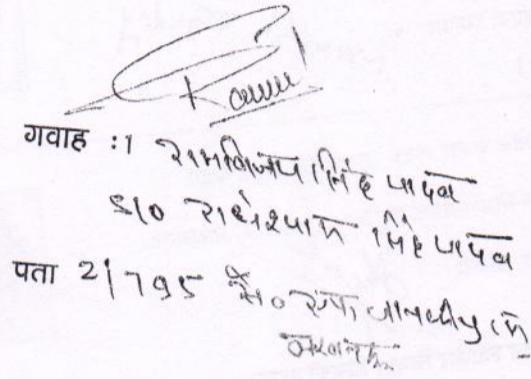 गवाह :1 रामविजय सिंह यादव
S/o राधेश्याम सिंह यादव
पता 2/795 से० एफ, जानकीपुरम
लखनऊ